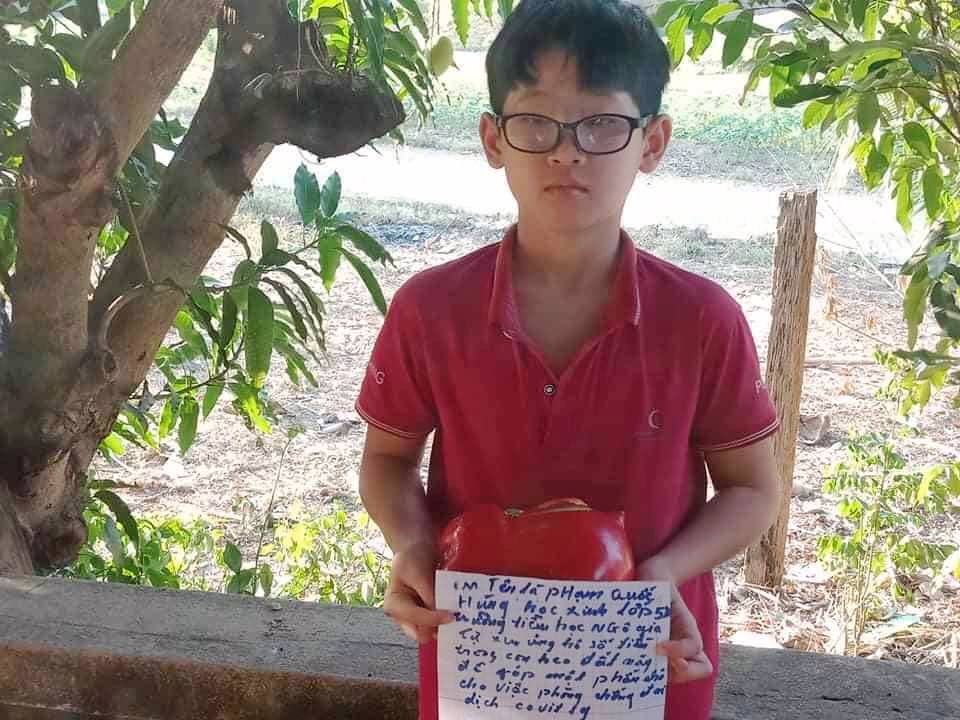 EM Tên là pHạm Quốc
Hưng học sinh lớp 5
trường tiểu học NGô gia
Tự xin ủng hộ số tiền
trong con heo đất này
để góp một phần nhỏ
cho việc phòng chống đại
dịch covid 19